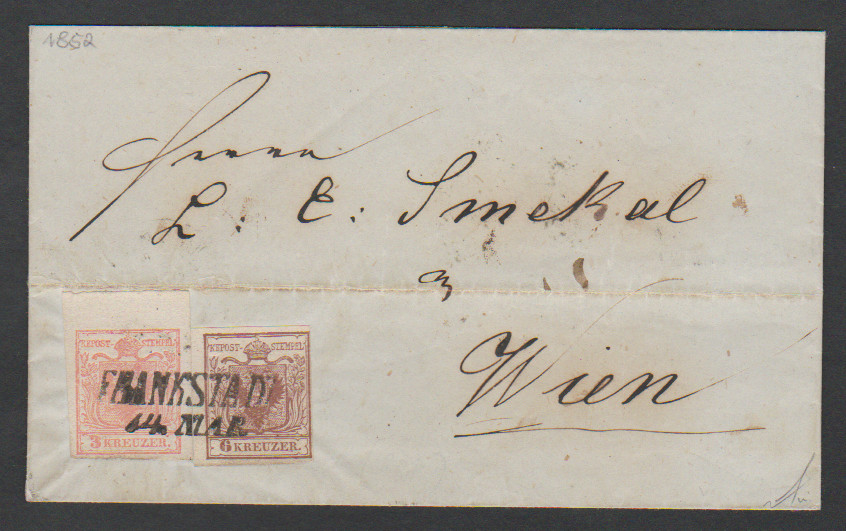 1852
Herrn
L. E. Smekal
in
Wien
KKPOST-STEMPEL
3 KREUZER.
KKPOST-STEMPEL
6 KREUZER.
FRANKSTADT
14. MAR